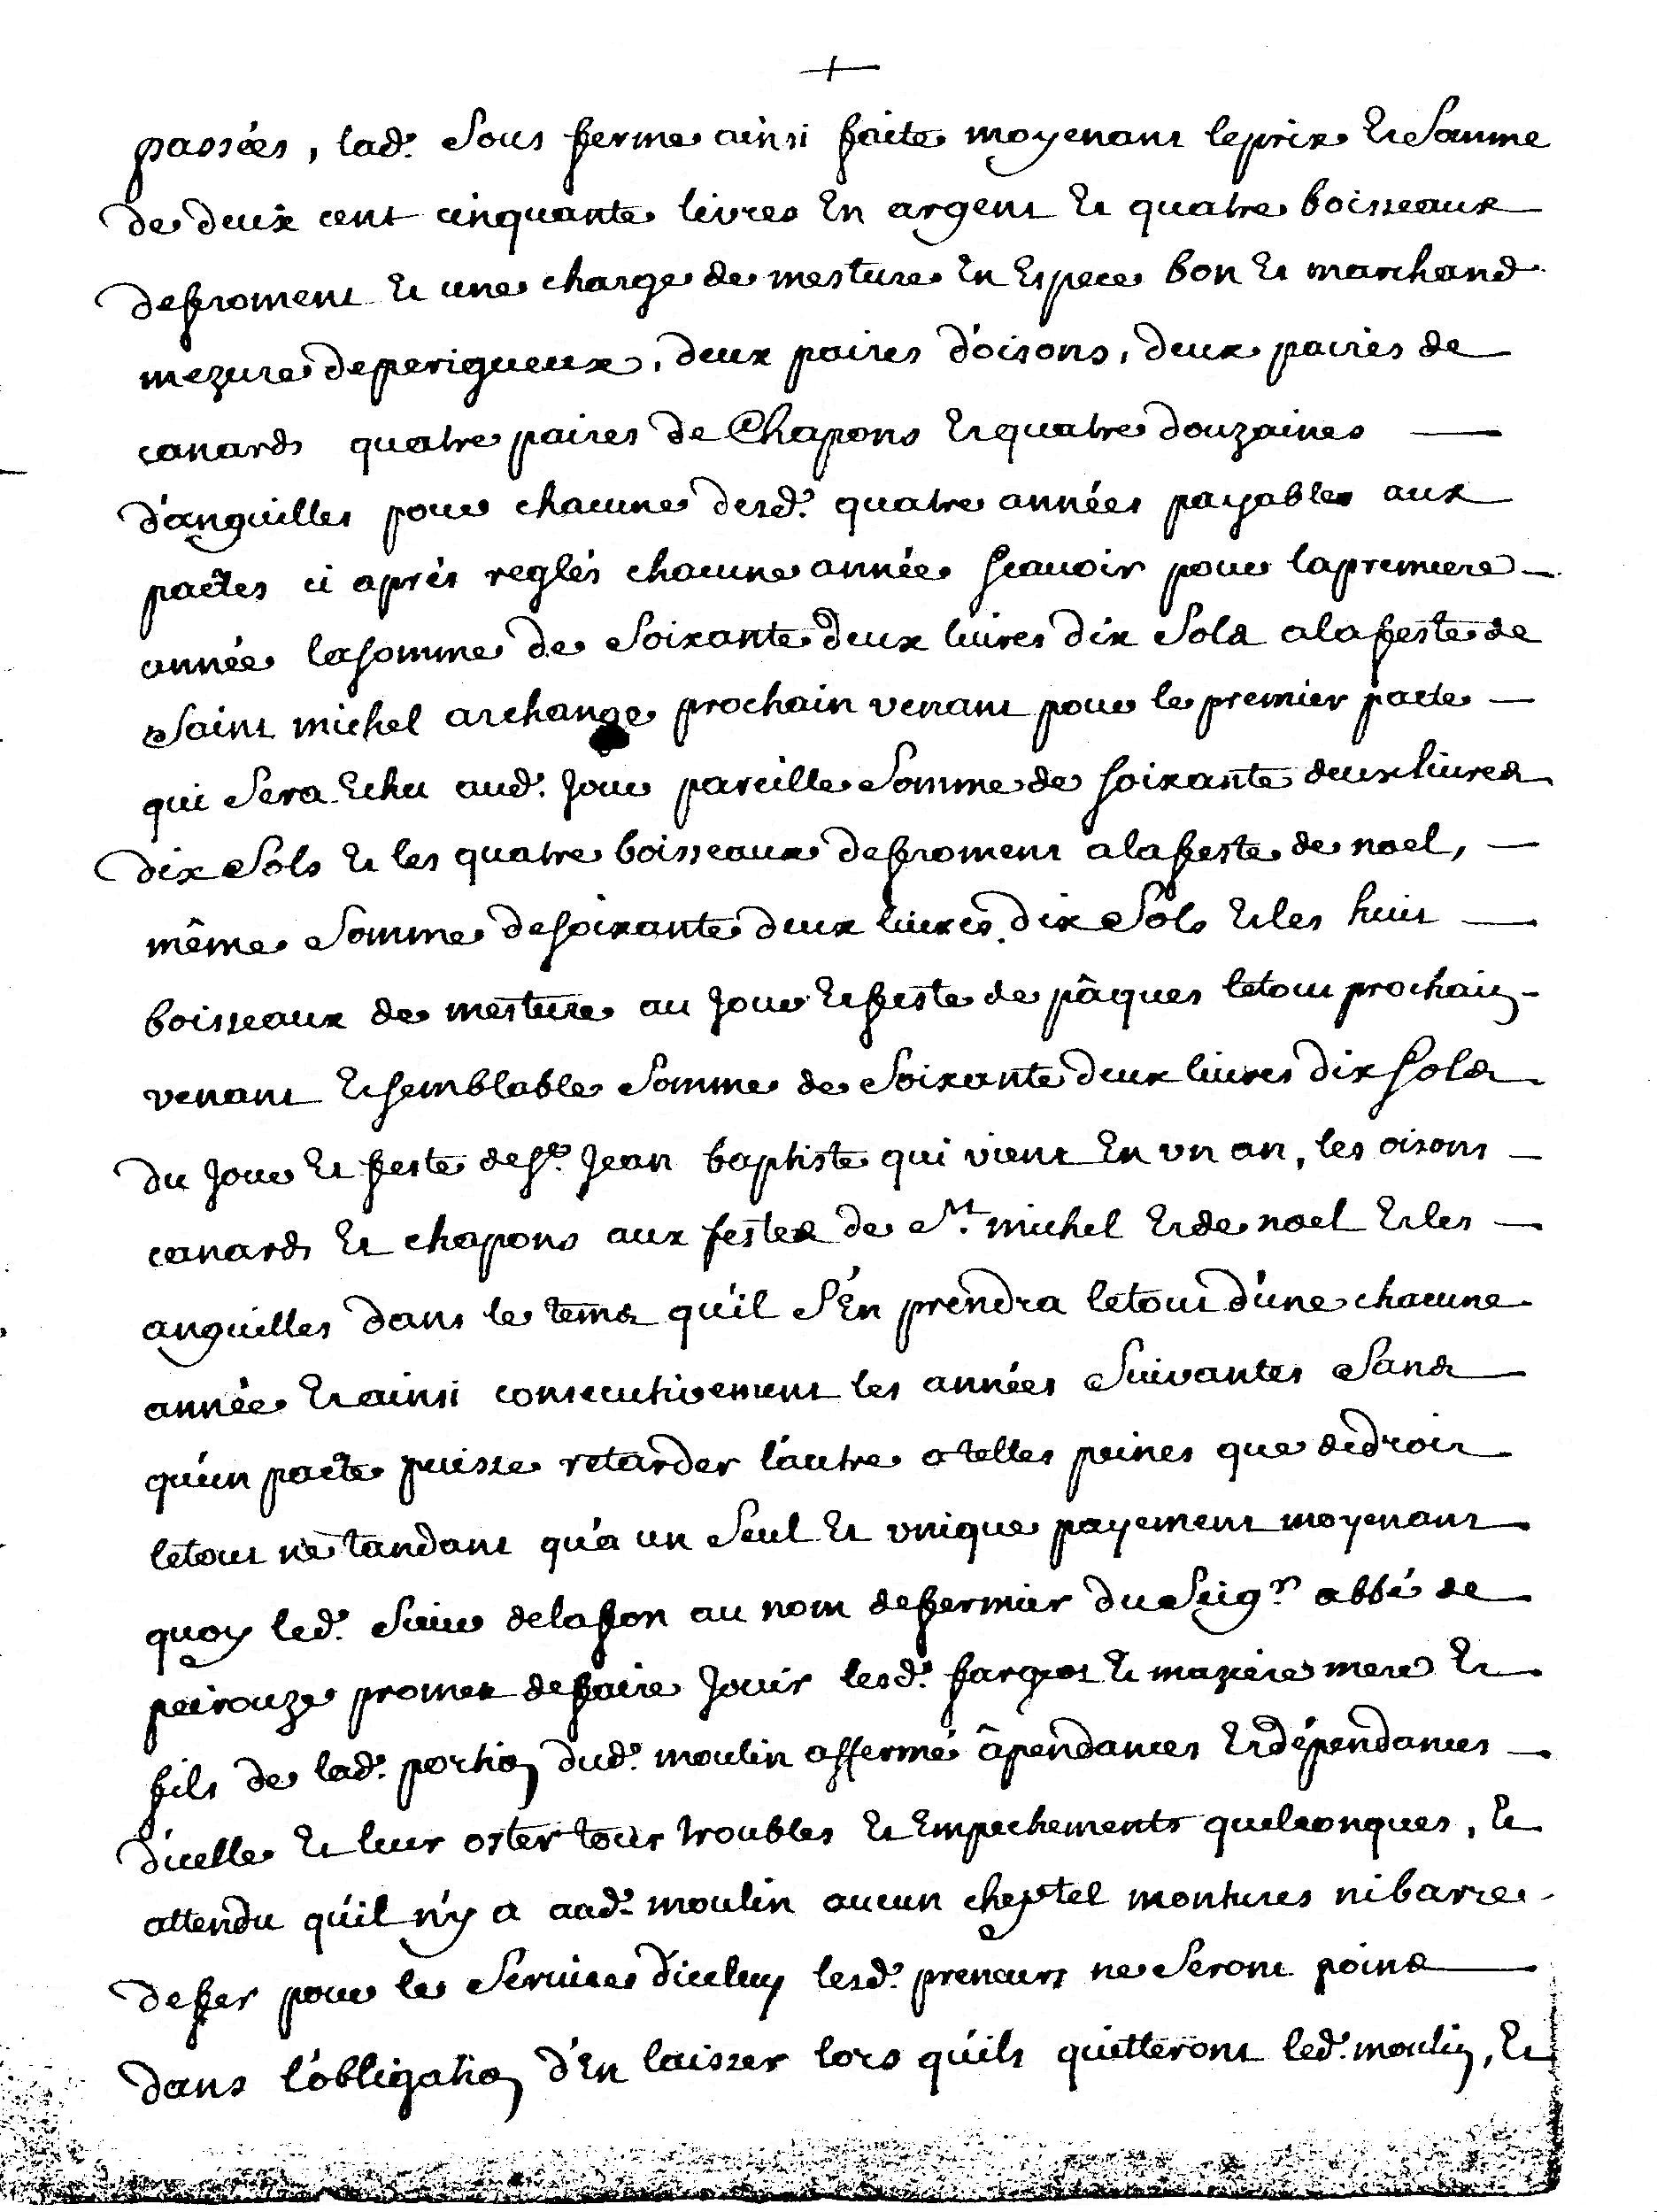 passées, lad. Sous ferme ainsi faite moyenant leprix et Somme
de deux cent cinquante livres En argent Et quatre boisseaux
defroment Et une charge de mesture En Espece bon Et marchand
mezure deperigueux, deux paires d'oisons, deux paires de
canards quatre paires de Chapons Et quatre douzaines
d'anguilles pour chacune desd. quatre années payables aux
pactes ci après reglés chacune année scavoir pour lapremiere
année lasomme de Soixante deux livres dix Sols alafeste de
Saint michel archange prochain venant pour le premier pacte
qui Sera Echu aud. jour pareille Somme de soixante deux livres
dix Sols Et les quatre boisseaux defroment alafeste de noel,
même Somme desoixante deux livres dix Sols Et les huit
boisseaux de mesture au jour Et feste de pâques letout prochain
venant Et semblable Somme de Soixante deux livres dix sols
du jour Et feste de st. jean baptiste qui vient En vn an, les oisons
canards Et chapons aux festes de St. michel Et de noel Et les
anguilles dans le tems qu'il S'En prendra letout d'une chacune
année Et ainsi consecutivement les années Suivantes Sans
qu'un pacte puisse retarder l'autre a telles peines que dedroit
letout ne tandant qu'a un Seul Et vnique payement moyenant
quoy led. Sieur delafon au nom defermier du Seigr. abbé de
peirouze promet defaire jouir lesd. farges Et maziere mere Et
fils de lad. portion dud. moulin affermé âpendances Et dépendances
d'icelle Et leur oster tous troubles Et Empechements quelconques, Et
attendu qu'il n'y a aud. moulin aucun cheptel montures ni barre
defer pour le Services d'iceluy lesd. preneurs ne Seront point
dans l'obligation d'En laisser lors qu'ils quitteront led. moulin, Et